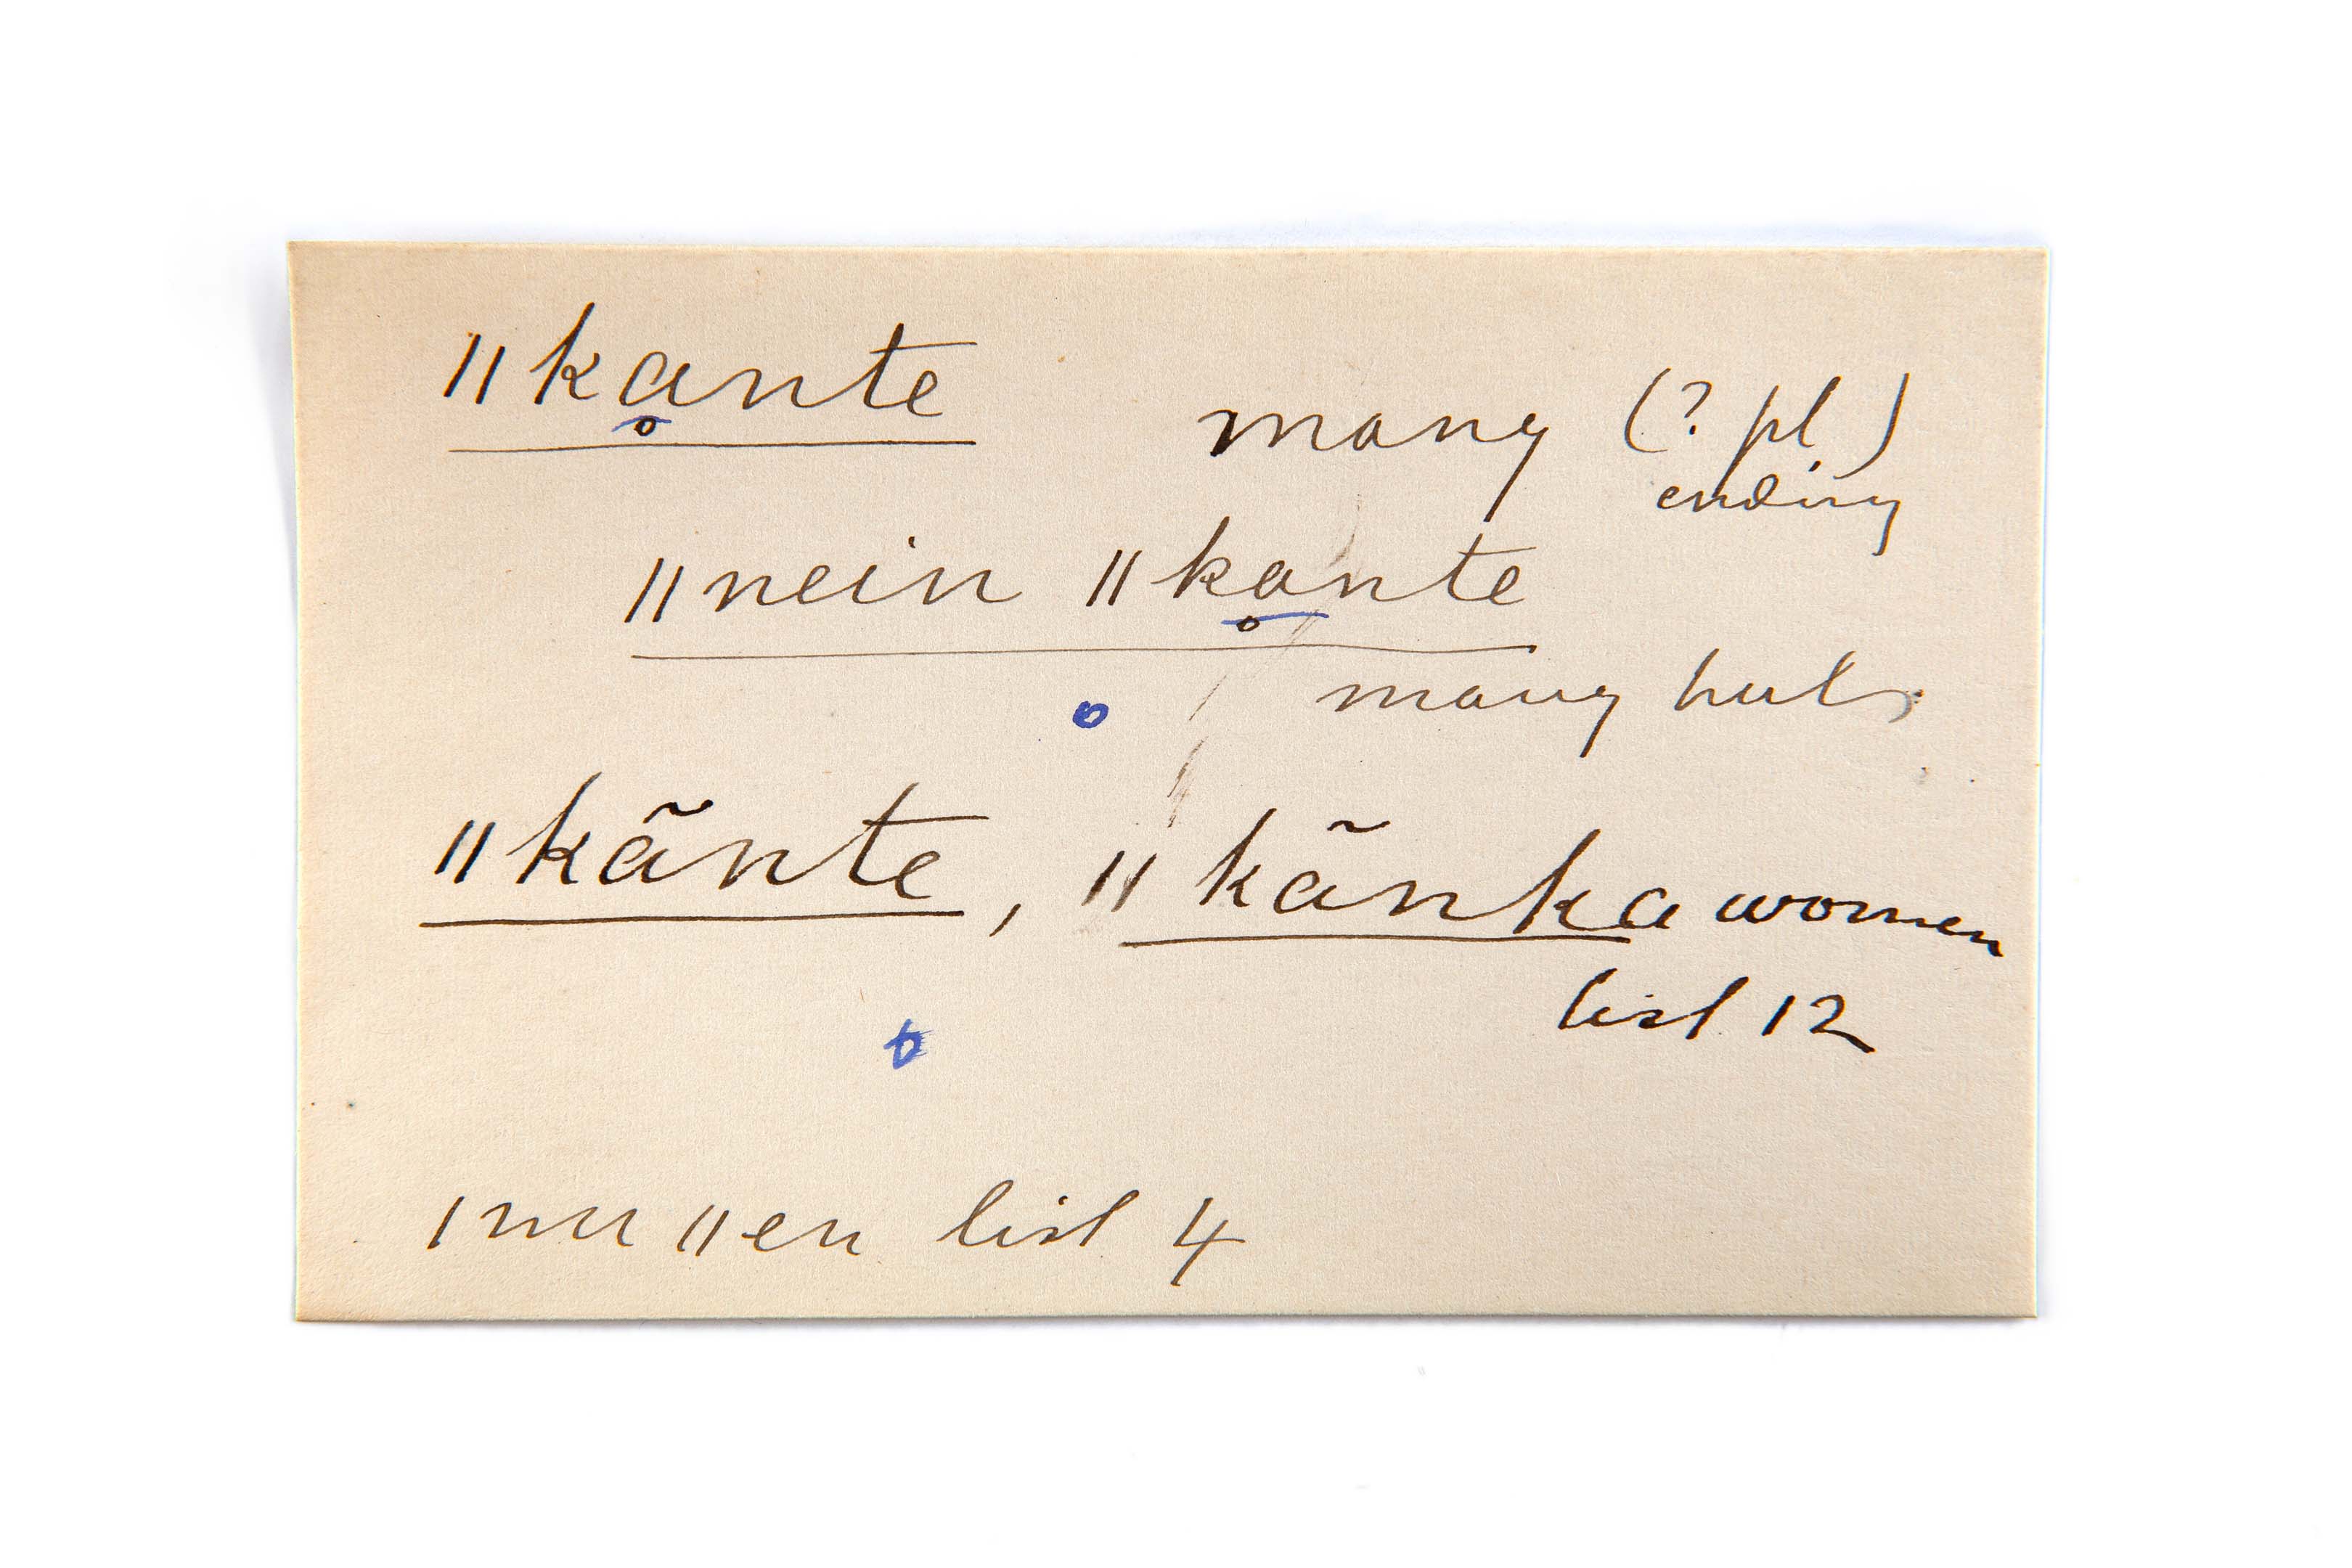 ǁkḁnte many (? pl.)
ending
ǁnein ǁkḁnte
many huts
ǁkãnte, ǁkãnka women
list 12
ǀnu ǁen list 4